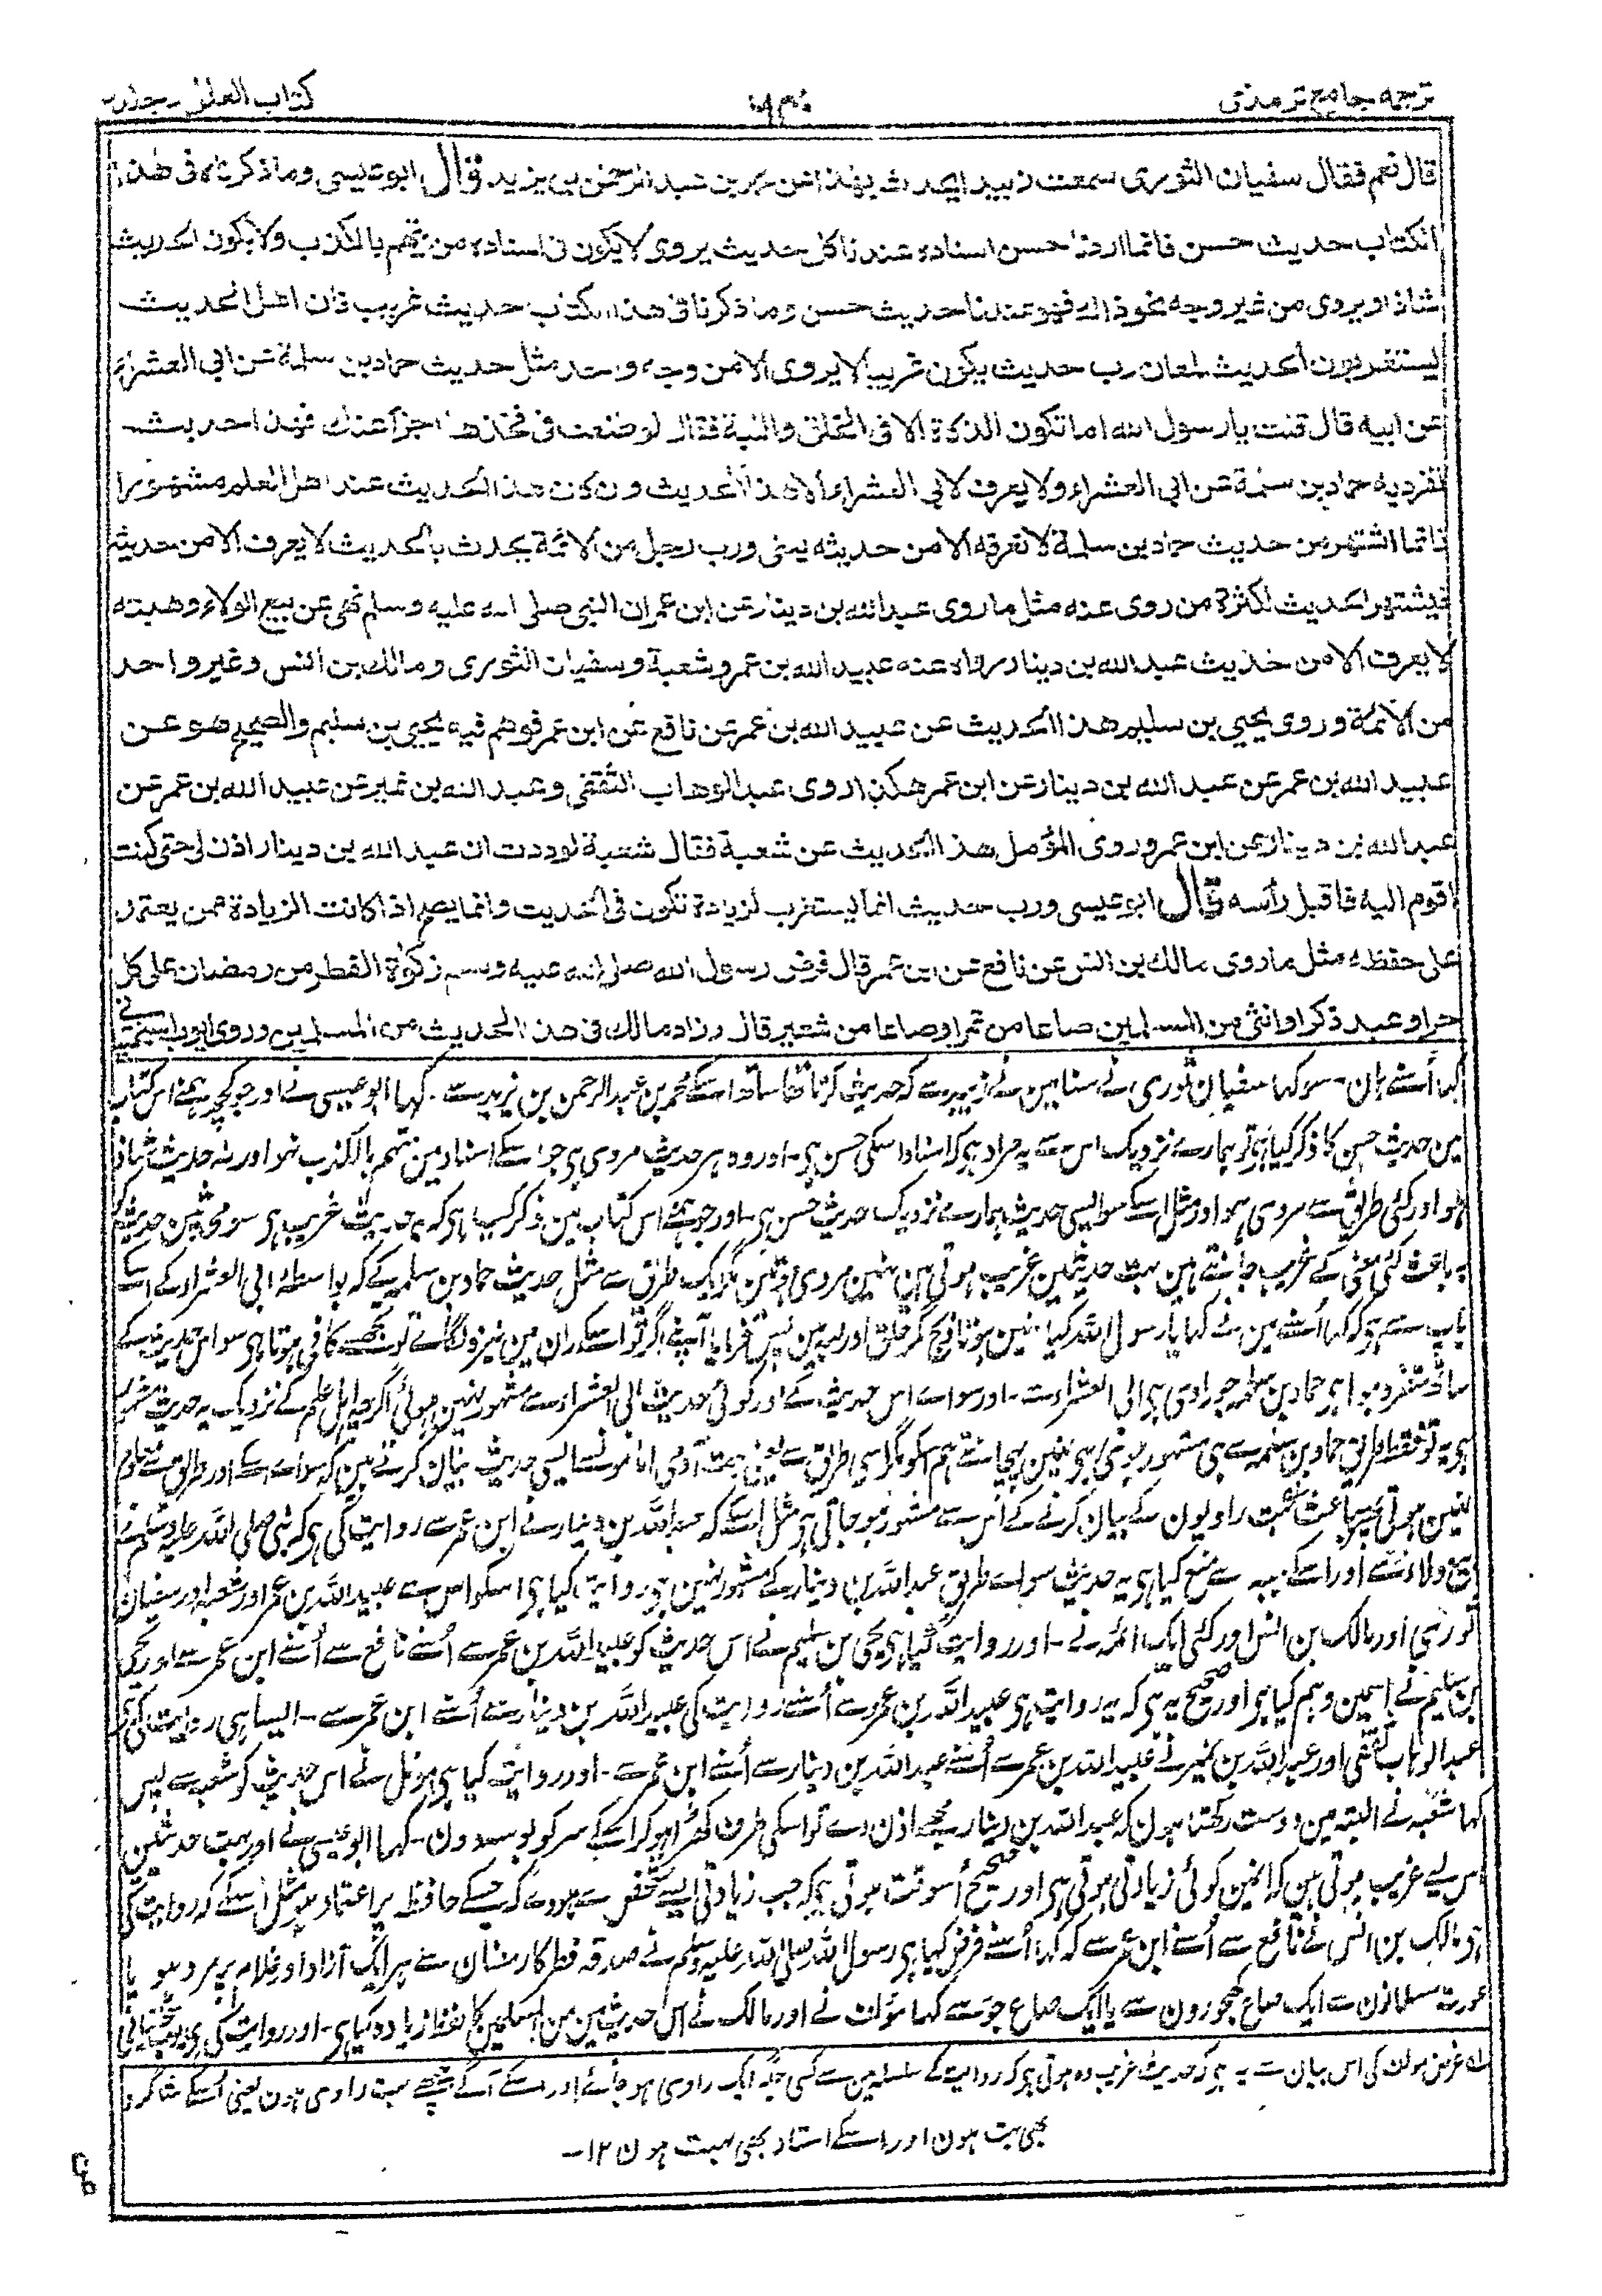 ترجمہ جامع ترمذی
کتاب العلل
قال نعم فقال سفيان الثوري سمعت زبيدا يحدث بهذا عن محمد بن عبد الرحمن بن يزيد قال ابو عيسى وما ذكرنا في هذا
الكتاب حديث حسن فانما اردنا حسن اسناده عندنا كل حديث يروى لا يكون في اسناده من يتهم بالكذب ولا يكون الحديث
شاذا ويروى من غير وجه نحو ذاك فهو عندنا حديث حسن وما ذكرنا في هذا الكتاب حديث غريب فان اهل الحديث
يستغربون الحديث لمعان رب حديث يكون غريبا لا يروى الا من وجه واحد مثل حديث حماد بن سلمة عن ابي العشراء
عن ابيه قال قلت يا رسول الله اما تكون الذكاة الا في الحلق واللبة فقال لو طعنت في فخذها اجزأ عنك فهذا حديث
تفرد به حماد بن سلمة عن ابي العشراء ولا يعرف لابي العشراء الا هذا الحديث وان كان هذا الحديث عند اهل العلم مشهورا
فانما اشتهر من حديث حماد بن سلمة لا نعرفه الا من حديثه يعني ورب رجل من الائمة يحدث بالحديث لا يعرف الا من حديثه
فيشتهر الحديث لكثرة من روى عنه مثل ما روى عبد الله بن دينار عن ابن عمر ان النبي صلى الله عليه وسلم نهى عن بيع الولاء وهبته
لا يعرف الا من حديث عبد الله بن دينار رواه عنه عبيد الله بن عمر وشعبة وسفيان الثوري ومالك بن انس وغير واحد
من الائمة وروى يحيى بن سليم هذا الحديث عن عبيد الله بن عمر عن نافع عن ابن عمر فوهم فيه يحيى بن سليم والصحيح هو عن
عبيد الله بن عمر عن عبد الله بن دينار عن ابن عمر هكذا روى عبد الوهاب الثقفي وعبد الله بن نمير عن عبيد الله بن عمر عن
عبد الله بن دينار عن ابن عمر وروى المؤمل هذا الحديث عن شعبة فقال شعبة لوددت ان عبد الله بن دينار اذن لي حتى كنت
اقوم اليه فاقبل رأسه قال ابو عيسى ورب حديث انما يستغرب لزيادة تكون في الحديث وانما يصح اذا كانت الزيادة ممن يعتمد
على حفظه مثل ما روى مالك بن انس عن نافع عن ابن عمر قال فرض رسول الله صلى الله عليه وسلم زكوة الفطر من رمضان على كل
حر او عبد ذكر او انثى من المسلمين صاعا من تمر او صاعا من شعير قال وزاد مالك في هذا الحديث من المسلمين وروى ايوب السختياني
کہا اُسنے ہان۔ سو کہا سفیان ثوری نے سنا مین نے زبید سے کہ حدیث کرتا تھا ساتھ اسکے محمد بن عبد الرحمن بن یزید سے۔ کہا ابو عیسی نے اور جو کچھ ہمنے اس کتاب
مین حدیث حسن کا ذکر کیا ہی تو ہمارے نزدیک اس سے یہ مراد ہی کہ اسناد اسکی حسن ہی۔ اور وہ ہر حدیث مروی ہی جو اسکے اسناد مین متہم بالکذب نہو اور نہ حدیث شاذ
ہو اور کئی طریق سے مروی ہو اور مثل اسکے سو ایسی حدیث ہمارے نزدیک حدیث حسن ہی۔ اور جو ہمنے اس کتاب مین ذکر کیا ہی کہ یہ حدیث غریب ہی سو محدثین حدیث کو
بہ باعث کئی معنی کے غریب جانتے ہین بہت حدیثین غریب ہوتی ہین نہین مروی ہوتین مگر ایک طریق سے مثل حدیث حماد بن سلمہ کے کہ بواسطہ ابی العشراء کے اسکے
باپ سے ہی کہ کہا اُسنے مین نے کہا یا رسول اللہ کیا نہین ہوتا ذبح مگر حلق اور لبہ مین پس فرمایا آپنے اگر تو اسکے ران مین نیزہ لگائے تو تجھے کافی ہوتا ہی سو اس حدیث کے
ساتھ متفرد ہوا ہی حماد بن سلمہ جو راوی ہی ابی العشراء سے۔ اور سواے اس حدیث کے اور کوئی حدیث ابی العشراء سے مشہور نہین ہوئی اگرچہ اہل علم کے نزدیک یہ حدیث مشہور
ہی یہ تو فقط طریق حماد بن سلمہ سے ہی مشہور ہوئی ہی نہین پہچانتے ہم اسکو مگر اسی طریق سے یعنی بہت آدمی امامونسے ایسی حدیث بیان کرتے ہین کہ سواے اسکے اور طریق سے معلوم
نہین ہوتی پھر باعث بہت راویون کے بیان کرنے کے اُس سے مشہور ہو جاتی ہی مثل اسکے کہ عبد اللہ بن دینار نے ابن عمر سے روایت کی ہی کہ نبی صلی اللہ علیہ وسلم نے
بیع ولاء سے اور اسکے ہبہ سے منع کیا ہی یہ حدیث سواے طریق عبد اللہ بن دینار کے مشہور نہین ہی روایت کیا ہی اسکو اس سے عبید اللہ بن عمر اور شعبہ اور سفیان
ثوری اور مالک بن انس اور کئی ایک ائمہ نے۔ اور روایت کیا ہی یحیی بن سلیم نے اس حدیث کو عبید اللہ بن عمر سے اُسنے نافع سے اُسنے ابن عمر سے اور یحیی
بن سلیم نے اسمین وہم کیا ہی اور صحیح یہ ہی کہ یہ روایت ہی عبید اللہ بن عمر سے اُسنے روایت کی عبد اللہ بن دینار سے اُسنے ابن عمر سے۔ ایسا ہی روایت کی ہی
عبد الوہاب ثقفی اور عبد اللہ بن نمیر نے عبید اللہ بن عمر سے اُسنے عبد اللہ بن دینار سے اُسنے ابن عمر سے۔ اور روایت کیا ہی مؤمل نے اس حدیث کو شعبہ سے پس
کہا شعبہ نے البتہ مین دوست رکھتا ہون کہ عبد اللہ بن دینار مجھے اذن دے تو اسکی طرف کھڑا ہو کر اسکے سر کو بوسہ دون۔ کہا ابو عیسی نے اور بہت حدیثین
اس لیے غریب ہوتی ہین کہ انمین کوئی زیادتی ہوتی ہی اور صحیح اُسوقت ہوتی ہی کہ جب زیادتی ایسے شخص سے ہووے کہ جسکے حافظہ پر اعتماد ہو مثل اسکے کہ روایت کی
ہی مالک بن انس نے نافع سے اُسنے ابن عمر سے کہ کہا اُسنے فرض کیا ہی رسول اللہ صلی اللہ علیہ وسلم نے صدقہ فطر کا رمضان سے ہر ایک آزاد اور غلام پر مرد ہو یا
عورت مسلمانون سے ایک صاع کھجورون سے یا ایک صاع جو سے کہا مؤلف نے اور مالک نے اس حدیث مین من المسلمین کا لفظ زیادہ کیا ہی۔ اور روایت کی ہی ایوب سختیانی
لہ غرض مولف کی اس بیان سے یہ ہی کہ حدیث غریب وہ ہوتی ہی کہ روایت کے سلسلہ مین سے کسی جگہ ایک راوی ہو جائے اور اسکے آگے پیچھے بہت راوی ہون یعنی اسکے شاگرد
بھی بہت ہون اور اسکے استاد بھی بہت ہون ۱۲۔